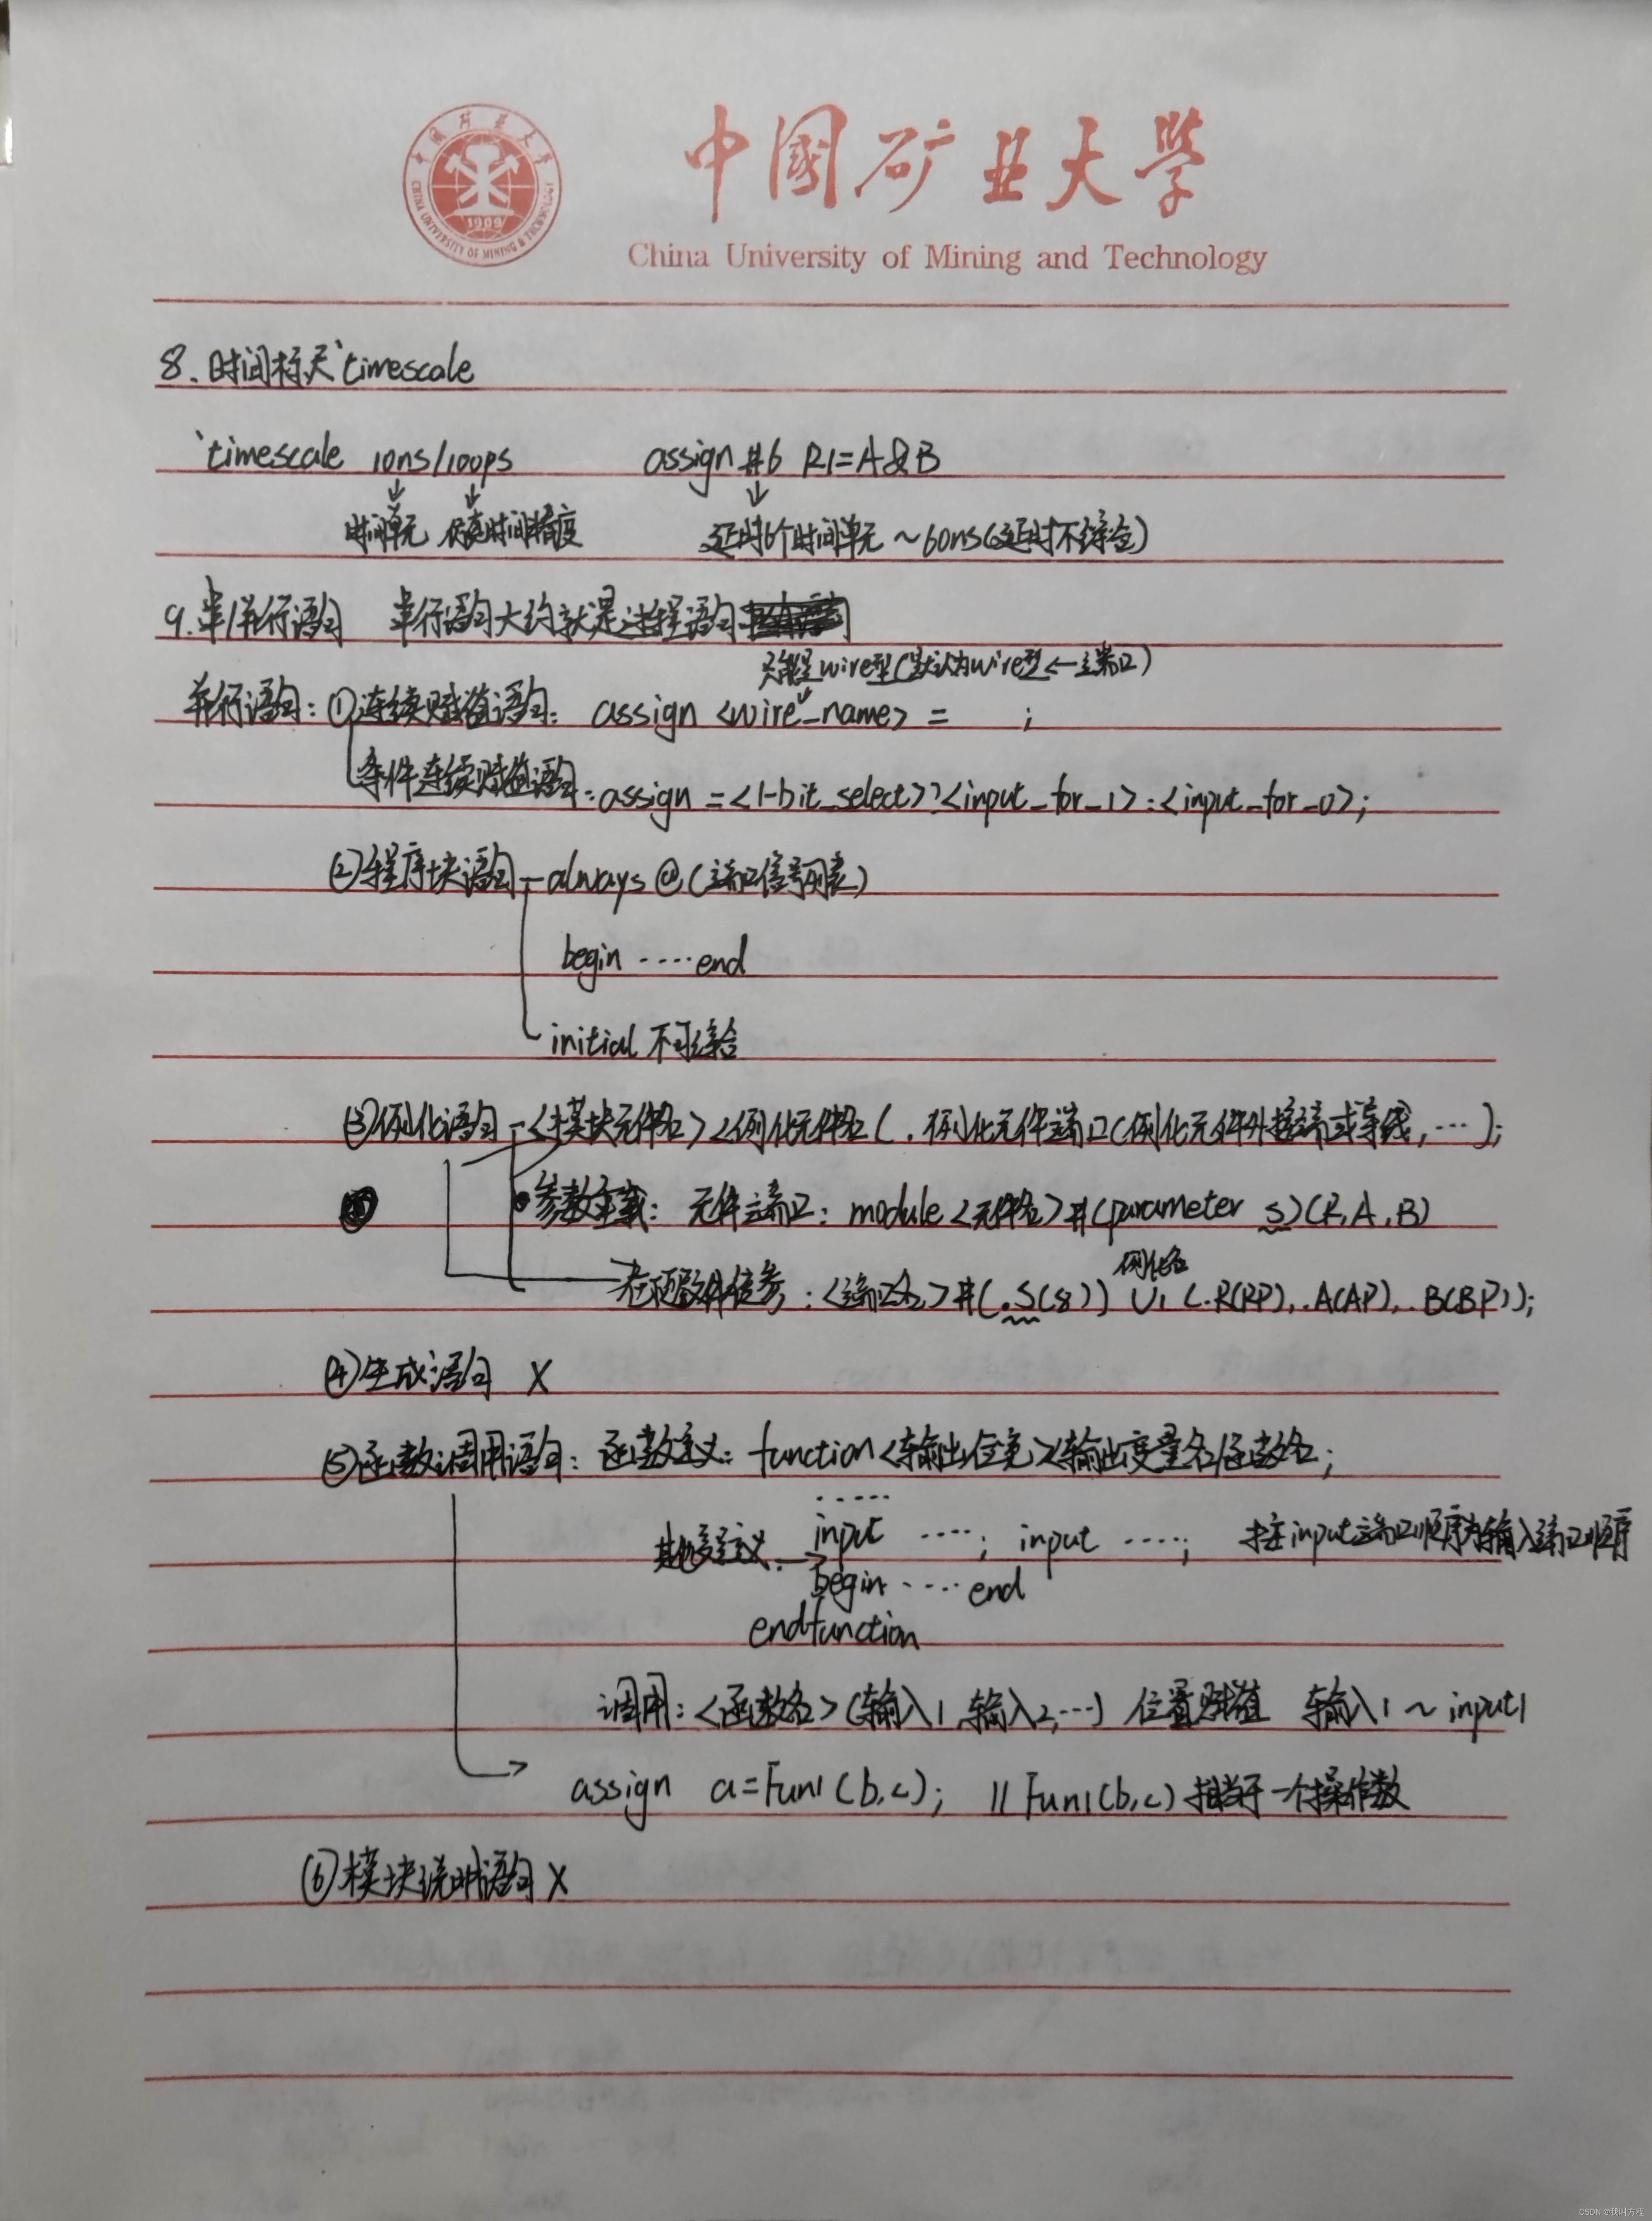 中国矿业大学
CHINA UNIVERSITY OF MINING & TECHNOLOGY
1909
中国矿业大学
China University of Mining and Technology
8.时间标尺`timescale
`timescale 10ns/100ps assign #6 R1=A&B
时间单元 仿真时间精度 延时6个时间单元~60ns(延时不综合)
9.串/并行语句 串行语句大约就是过程语句
只能是wire型(默认为wire型←端口)
并行语句:①连续赋值语句: assign <wire_name> = ;
条件连续赋值语句:assign =<1-bit_select>?<input_for_1>:<input_for_0>;
②程序块语句—always @(端口信号列表)
begin ····end
initial 不可综合
③例化语句-<模块元件名><例化元件名(.例化元件端口(例化元件外接端或导线,…);
参数重载: 元件端口: module <元件名>#(parameter S)(R,A,B)
例化名
在顶层文件传参:<端口名>#(.S(8)) U1 (.R(RP),.A(AP),.B(BP));
④生成语句 X
⑤函数调用语句:函数定义: function<输出位宽><输出变量名/函数名;
······
其他定义.→ input ····; input ····; 按input端口顺序为输入端口顺序
begin ···· end
endfunction
调用:<函数名>(输入1,输入2,…) 位置赋值 输入1~input1
assign a=Fun1(b,c); //Fun1(b,c)相当于一个操作数
⑥模块说明语句X
CSDN @我叫方程